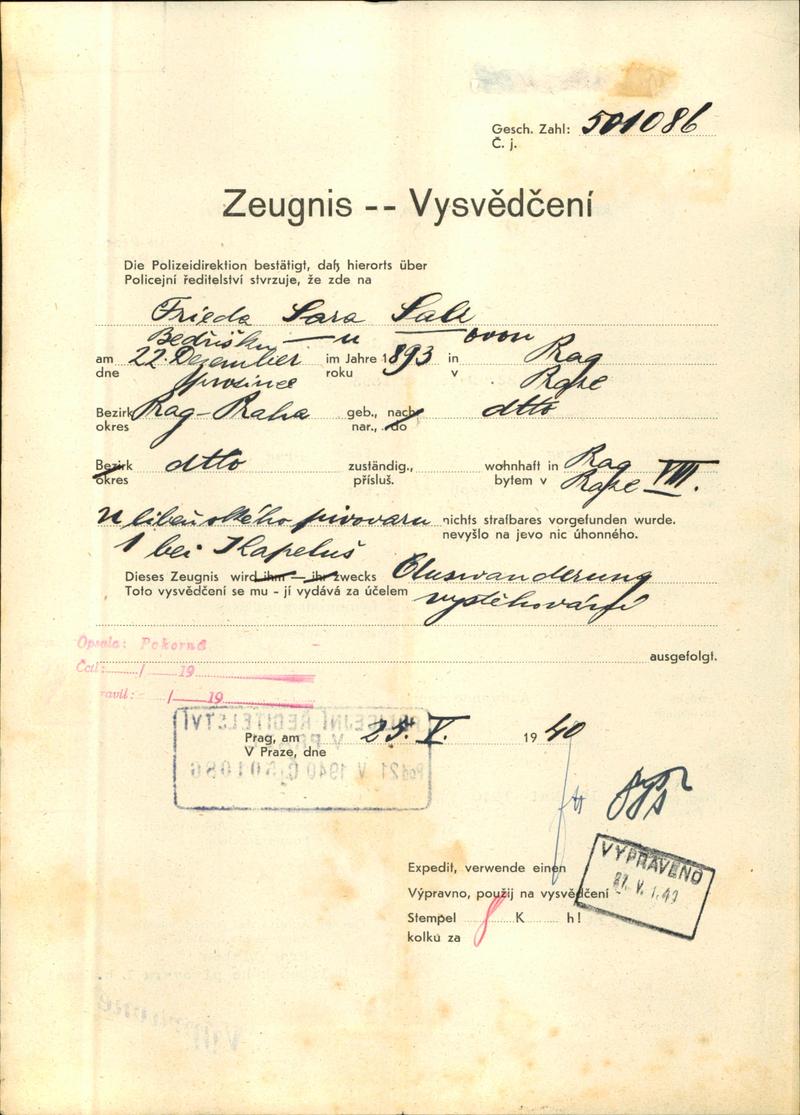 Gesch. Zahl: 501086
Č. j.
Zeugnis -- Vysvědčení
Die Polizeidirektion bestätigt, daß hierorts über
Policejní ředitelství stvrzuje, že zde na
Frieda Sara
Bedřišku — u — ovou
am 22. Dezember im Jahre 1893 in Prag
dne prosince roku v Praze
Bezirk Prag-Praha geb., nach dtto
okres nar., do
Bezirk dtto zuständig., wohnhaft in Prag VIII.
okres přísluš. bytem v Praze
U libeňského pivovaru nichts strafbares vorgefunden wurde.
nevyšlo na jevo nic úhonného.
1 bei Kapeluš
Dieses Zeugnis wird ihm — ihr zwecks Auswanderung
Toto vysvědčení se mu - jí vydává za účelem vystěhování
ausgefolgt.
Opsala: Pokorná
Četl: / 19
ravil: / 19
POLICEJNÍ ŘEDITELSTVÍ
V PRAZE
Prag, am 25. V. 1940
V Praze, dne
21 V 1940 501086
Expedit, verwende einen
VYPRAVENO
Výpravno, použij na vysvědčení -
V. 1.40
Stempel 8 K h!
kolku za